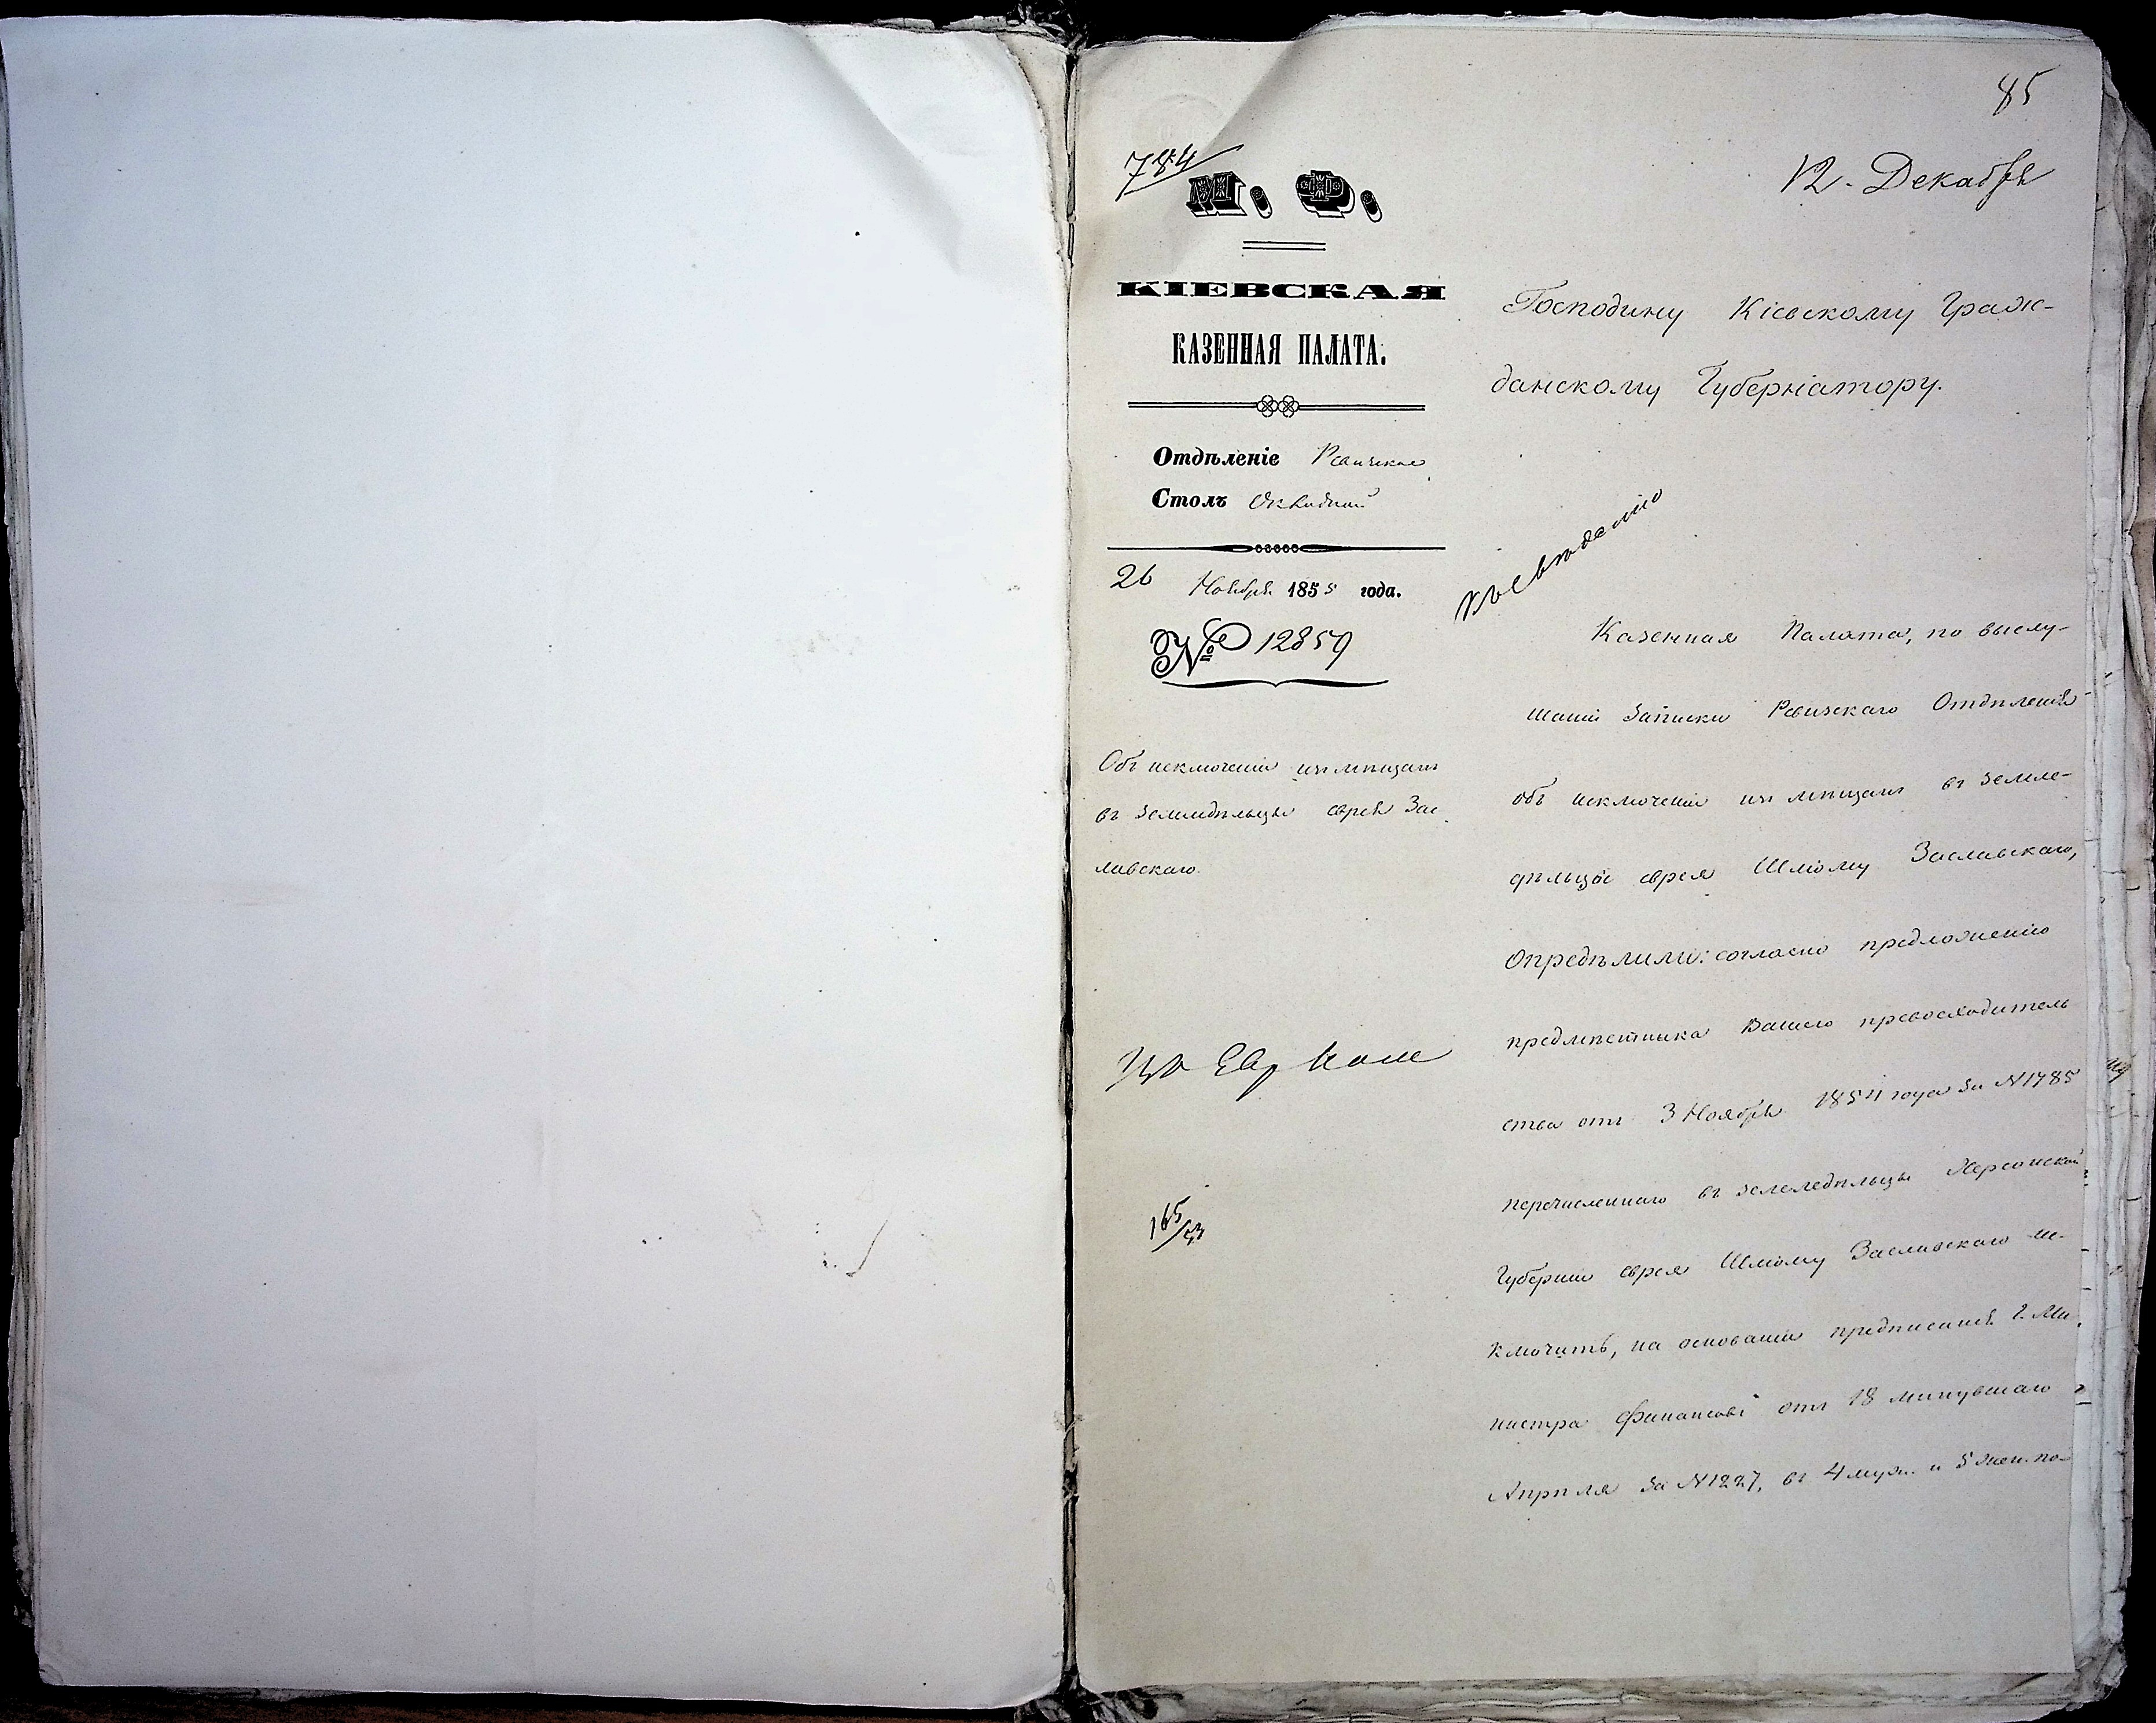 85
784
12. Декабря
М. Ф.
КІЕВСКАЯ
КАЗЕННАЯ ПАЛАТА.
Отдѣленіе Ревизское
Столъ Окладной
26 Ноября 1855 года.
№ 12859
Объ исключеніи изъ мѣщанъ
въ земледѣльцы еврея Зас
лавскаго.
165/53
Господину Кіевскому Граж-
данскому Губернатору.
Къ свѣденію
Казенная Палата, по выслу-
шаніи Записки Ревизскаго Отдѣленія
объ исключеніи изъ мѣщанъ въ земле-
дѣльцы еврея Шлёму Заславскаго,
Опредѣлили: согласно предложенію
предмѣстника Вашего превосходитель
ства отъ 3 Ноября 1854 года за N 1785
перечисленнаго въ земледѣльцы Херсонской
Губерніи еврея Шлёму Заславскаго ис-
ключить, на основаніи предписанія Г. Ми
нистра Финансовъ отъ 18 минувшаго
Апрѣля за N 1227, въ 4 муж. и 5 жен. по-